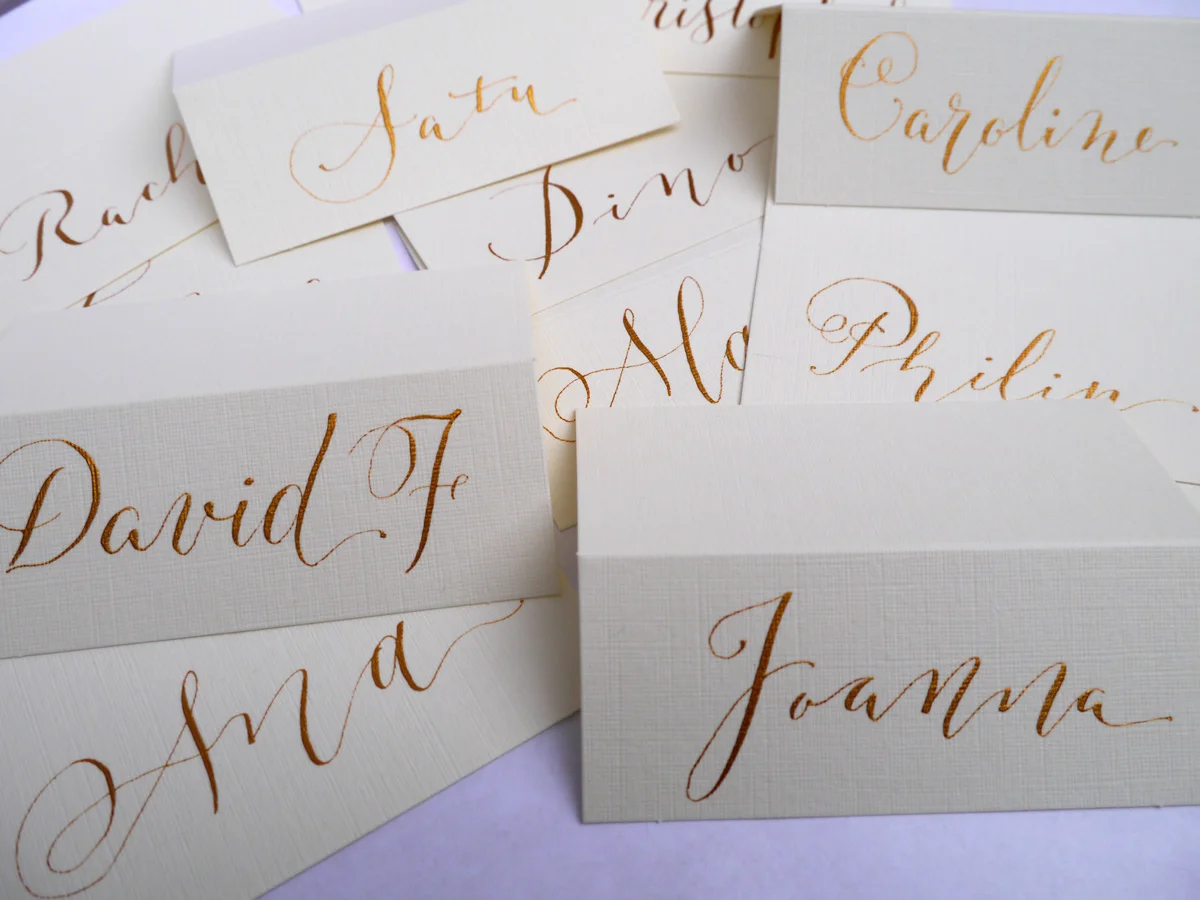 Satu
Caroline
Rach
Dino
Philip
David F
Ana
Joanna